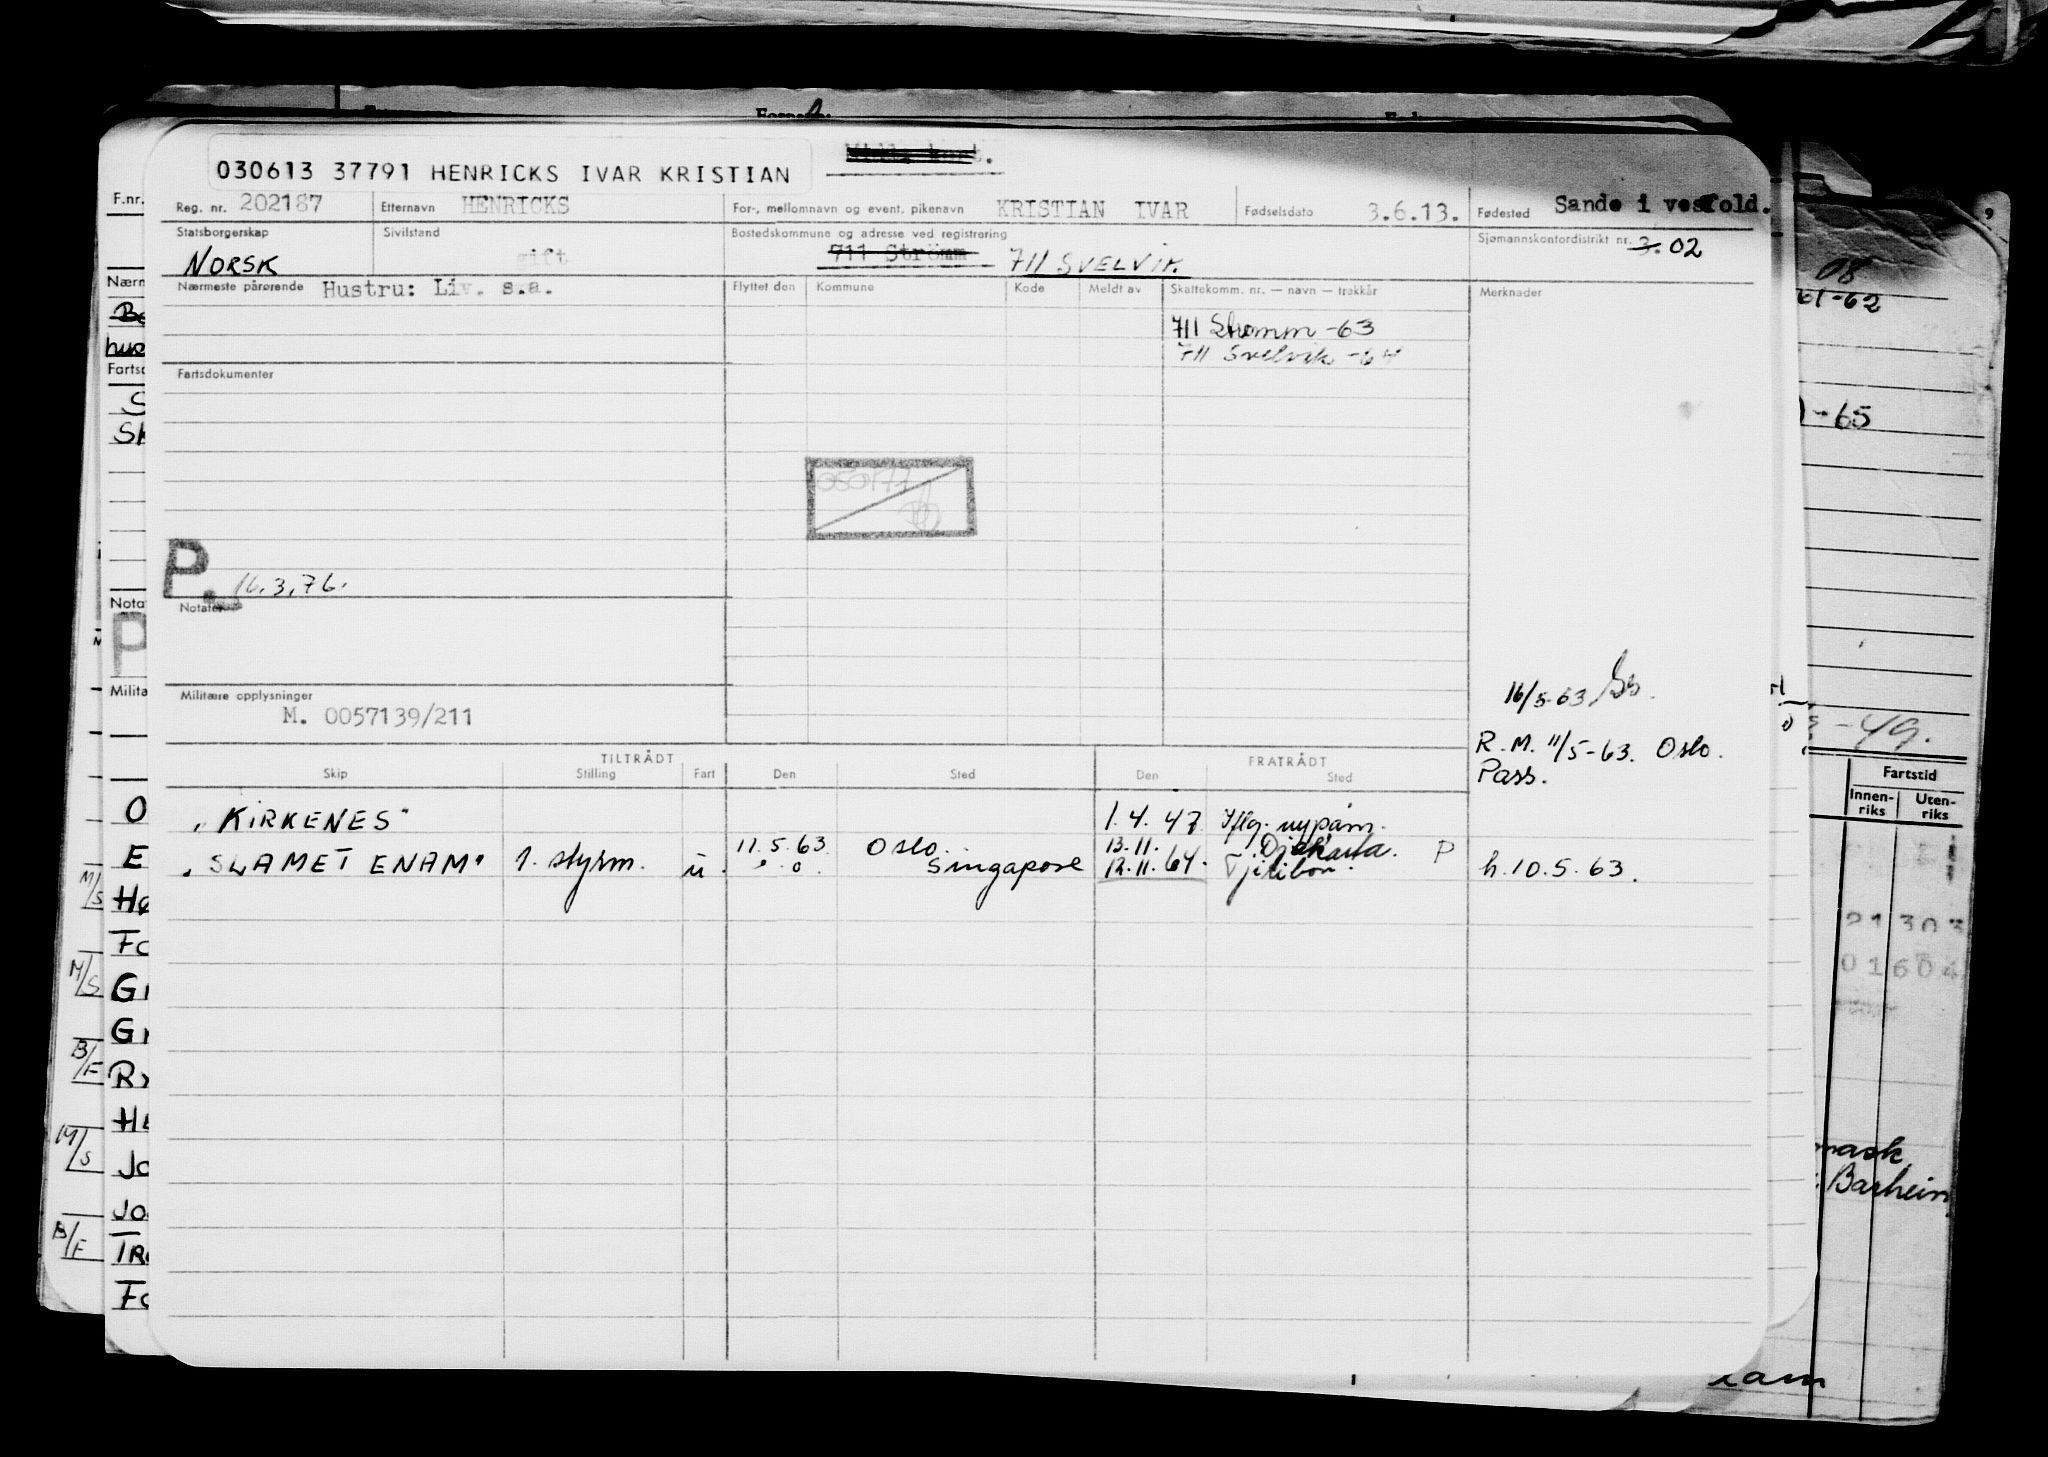 030613 37791 HENRICKS IVAR KRISTIAN
Reg. nr. 202187 Etternavn HENRICKS For-, mellomnavn og event. pikenavn KRISTIAN IVAR Fødselsdato 3.6.13. Fødested Sande i vestfold.
Statsborgerskap Sivilstand Bostedskommune og adresse ved registrering Sjømannskontordistrikt nr. 3. 02
NORSK gift 711 Strömm 711 SVELVIK
Nærmeste pårørende Hustru: Liv. s.a. Flyttet den Kommune Kode Meldt av Skattekomm. nr. — navn — trekkår Merknader
711 Strømm -63
711 Svelvik -64
Fartsdokumenter
P. 16.3.76.
Notater
Militære opplysninger
M. 0057139/211
16/5-63
R.M. 11/5-63. Oslo.
Pass.
TILTRÅDT FRATRÅDT
Skip Stilling Fart Den Sted Den Sted
"KIRKENES" 1.4.47
13.11.
"SLAMET ENAM" 1. styrm. u. 11.5.63 Oslo. Singapore 12.11.64. P h.10.5.63.
F.nr.
Nota
P
Milita
O
E
M/S
Fo
M/S
B/F
M/S
Jo
Jo
B/F
Fo
08
61-62
-65
-49.
Fartstid
Innen-
riks
Uten-
riks
21 303
Barhein